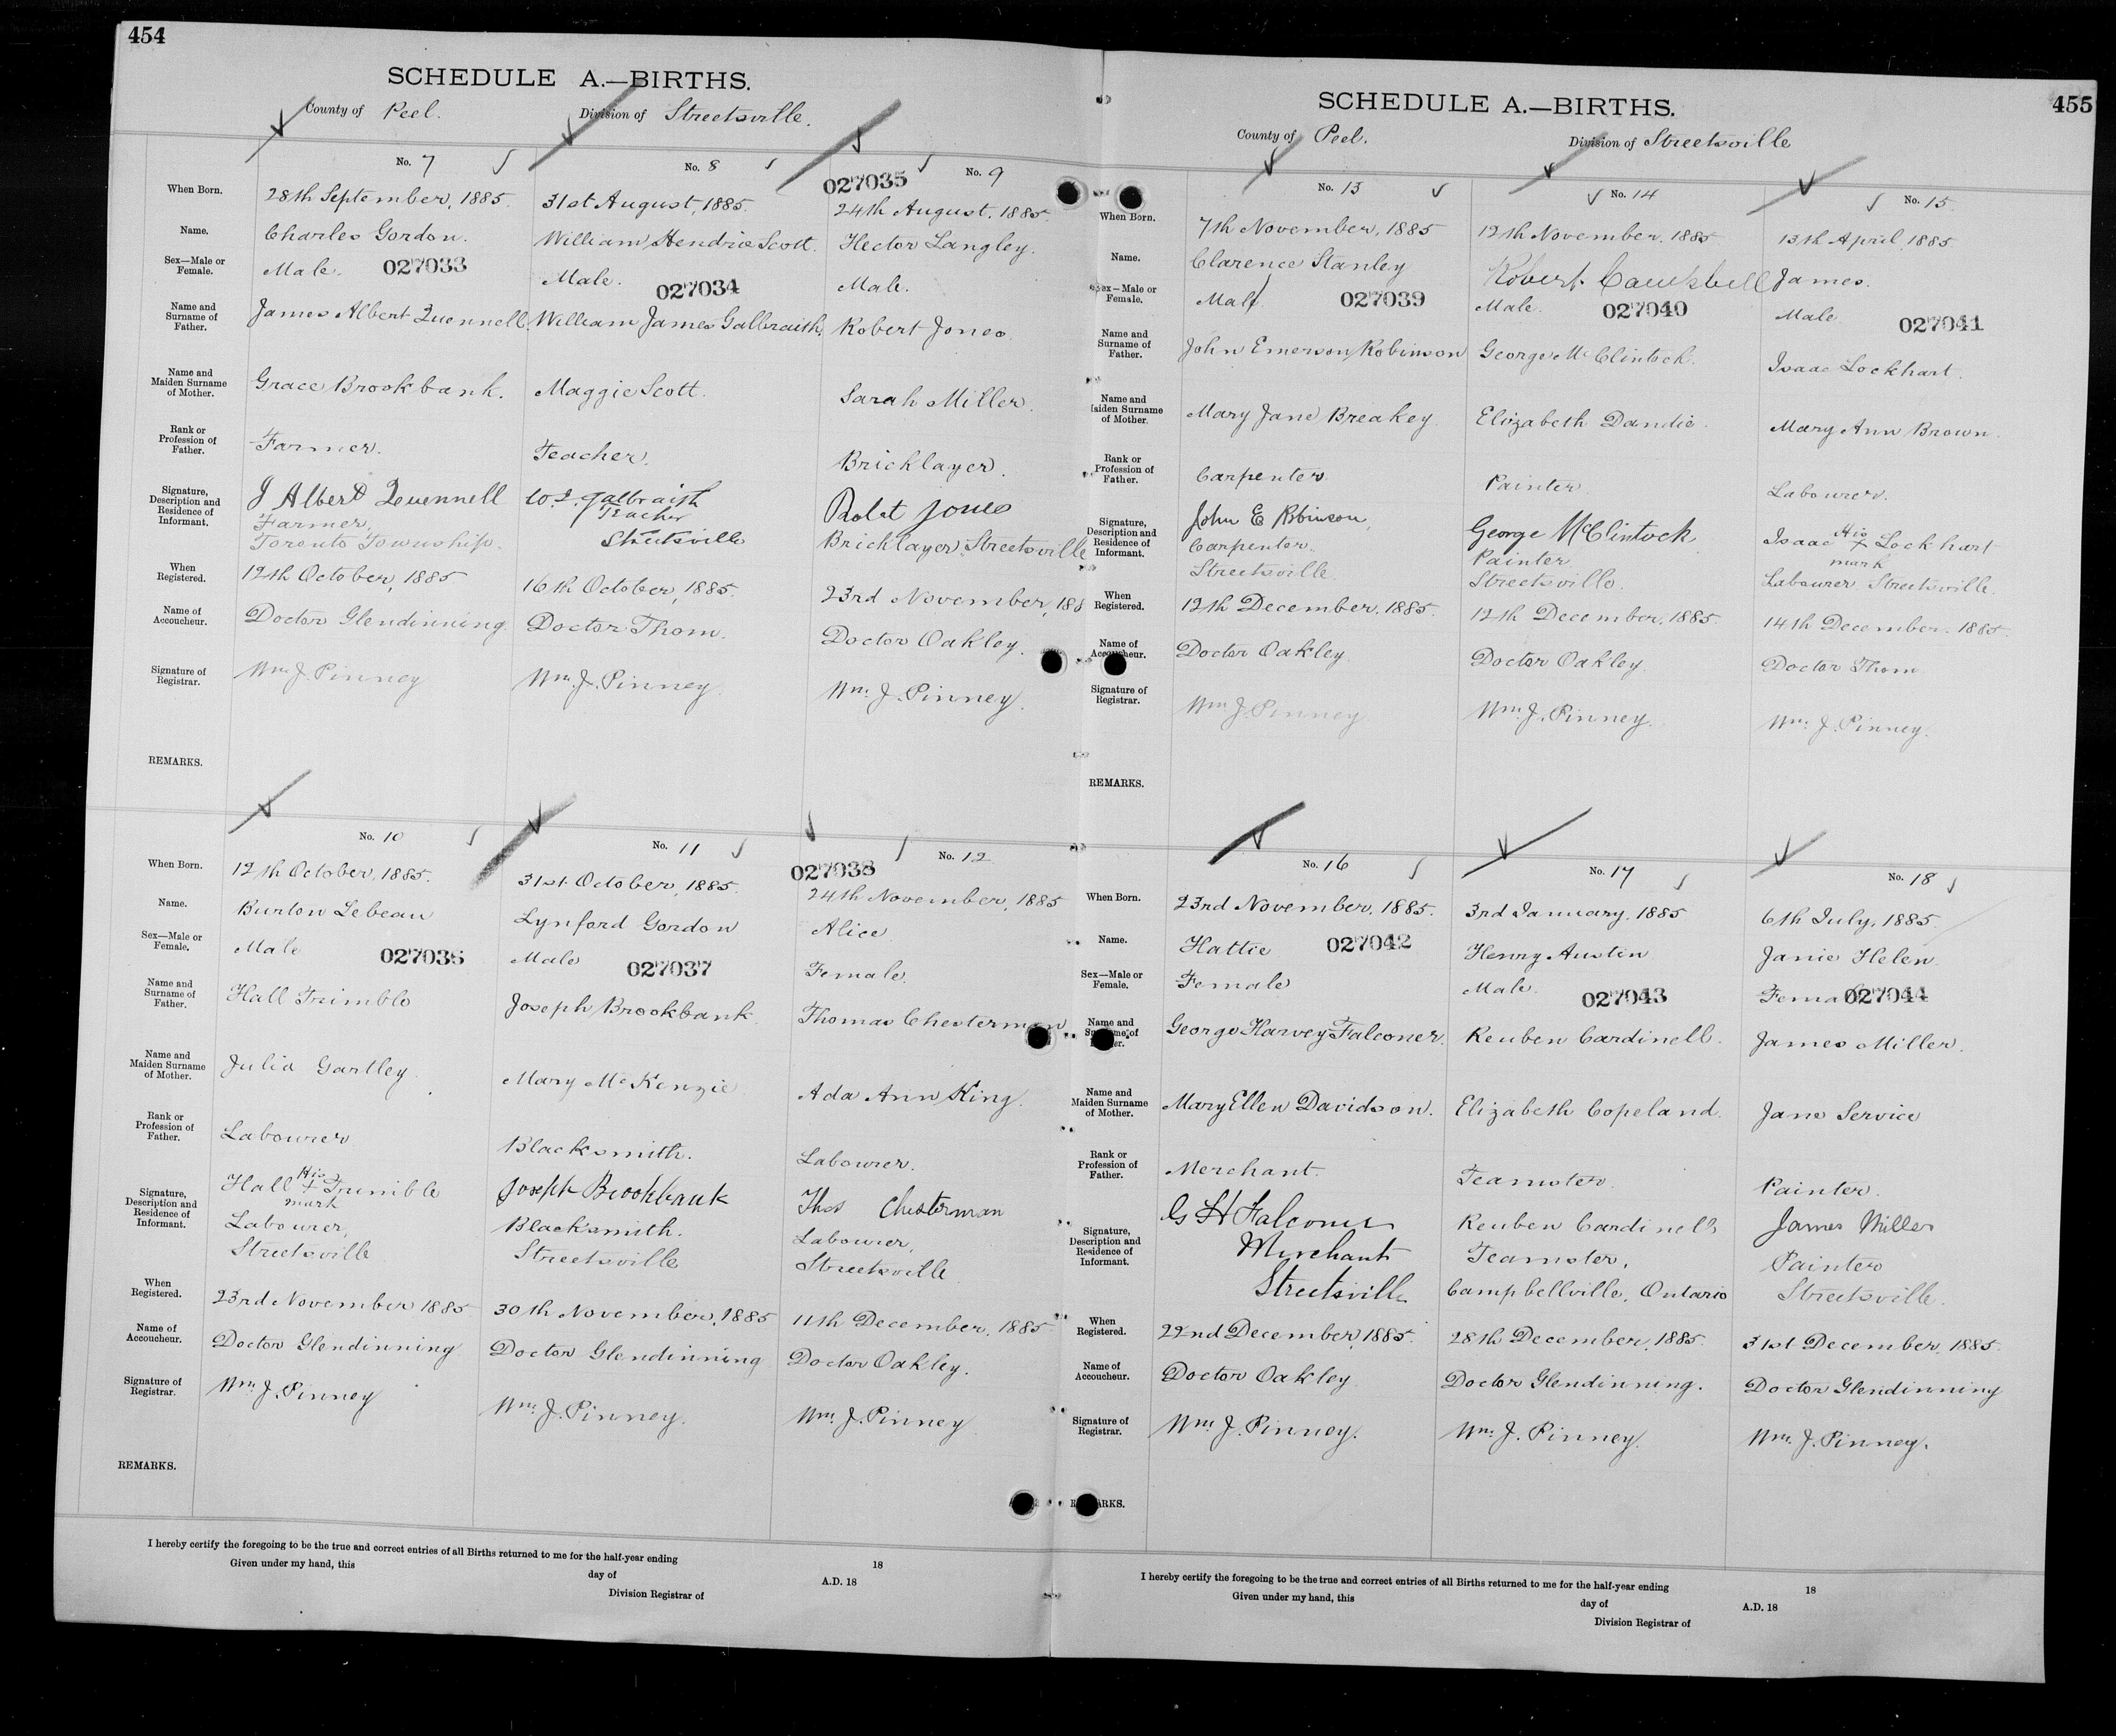 454
SCHEDULE A.—BIRTHS.
County of Peel. Division of Streetsville.
No. 7
When Born. 28th September, 1885.
Name. Charles Gordon.
Sex—Male or Female. Male. 027033
Name and Surname of Father. James Albert Quennell
Name and Maiden Surname of Mother. Grace Brookbank.
Rank or Profession of Father. Farmer.
Signature, Description and Residence of Informant. J Albert Quennell
Farmer,
Toronto Township.
When Registered. 12th October, 1885
Name of Accoucheur. Doctor Glendinning.
Signature of Registrar. Wm. J. Pinney
REMARKS.
No. 8
31st August, 1885.
William Hendrie Scott.
Male. 027034
William James Galbraith.
Maggie Scott.
Teacher.
W. J. Galbraith
Teacher
Streetsville
16th October, 1885.
Doctor Thom.
Wm. J. Pinney.
027035 No. 9
24th August, 1885.
Hector Langley.
Male.
Robert Jones.
Sarah Miller.
Bricklayer.
Robt Jones
Bricklayer, Streetsville
23rd November, 188
Doctor Oakley.
Wm. J. Pinney.
No. 10
When Born. 12th October, 1885.
Name. Burton Lebeau
Sex—Male or Female. Male 027036
Name and Surname of Father. Hall Trimble
Name and Maiden Surname of Mother. Julia Gartley.
Rank or Profession of Father. Labourer
Signature, Description and Residence of Informant. Hall His X mark Trimble
Labourer,
Streetsville
When Registered. 23rd November 1885
Name of Accoucheur. Doctor Glendinning
Signature of Registrar. Wm. J. Pinney
REMARKS.
No. 11
31st October, 1885.
Lynford Gordon
Male 027037
Joseph Brookbank.
Mary McKenzie
Blacksmith.
Joseph Brookbank
Blacksmith.
Streetsville
30th November, 1885
Doctor Glendinning
Wm. J. Pinney.
027038 No. 12
24th November, 1885
Alice
Female.
Thomas Chesterman
Ada Ann King.
Labourer.
Thos Chesterman
Labourer,
Streetsville
11th December, 1885.
Doctor Oakley.
Wm. J. Pinney
I hereby certify the foregoing to be the true and correct entries of all Births returned to me for the half-year ending 18
Given under my hand, this day of A.D. 18
Division Registrar of
455
SCHEDULE A.—BIRTHS.
County of Peel. Division of Streetsville
No. 13
When Born. 7th November, 1885
Name. Clarence Stanley
Sex—Male or Female. Male 027039
Name and Surname of Father. John Emerson Robinson
Name and Maiden Surname of Mother. Mary Jane Breakey
Rank or Profession of Father. Carpenter
Signature, Description and Residence of Informant. John E Robinson,
Carpenter.
Streetsville.
When Registered. 12th December, 1885.
Name of Accoucheur. Doctor Oakley.
Signature of Registrar. Wm. J. Pinney
REMARKS.
No. 14
12th November, 1885
Robert Campbell
Male. 027040
George McClintock.
Elizabeth Dandie.
Painter
George McClintock
Painter
Streetsville.
12th December, 1885.
Doctor Oakley.
Wm. J. Pinney.
No. 15.
13th April, 1885
James.
Male 027041
Isaac Lockhart.
Mary Ann Brown.
Labourer.
Isaac His X mark Lockhart
Labourer Streetsville.
14th December, 1885.
Doctor Thom
Wm. J. Pinney.
No. 16
When Born. 23rd November, 1885.
Name. Hattie 027042
Sex—Male or Female. Female
Name and Surname of Father. George Harvey Falconer.
Name and Maiden Surname of Mother. Mary Ellen Davidson.
Rank or Profession of Father. Merchant.
Signature, Description and Residence of Informant. G H Falconer
Merchant
Streetsville
When Registered. 22nd December, 1885.
Name of Accoucheur. Doctor Oakley
Signature of Registrar. Wm. J. Pinney.
REMARKS.
No. 17
3rd January, 1885
Henry Austin
Male. 027043
Reuben Cardinell.
Elizabeth Copeland.
Teamster.
Reuben Cardinell
Teamster,
Campbellville, Ontario
28th December, 1885.
Doctor Glendinning.
Wm. J. Pinney.
No. 18
6th July, 1885.
Janie Helen.
Female 027044
James Miller.
Jane Service
Painter.
James Miller
Painter
Streetsville.
31st December, 1885.
Doctor Glendinning
Wm. J. Pinney.
I hereby certify the foregoing to be the true and correct entries of all Births returned to me for the half-year ending 18
Given under my hand, this day of A.D. 18
Division Registrar of